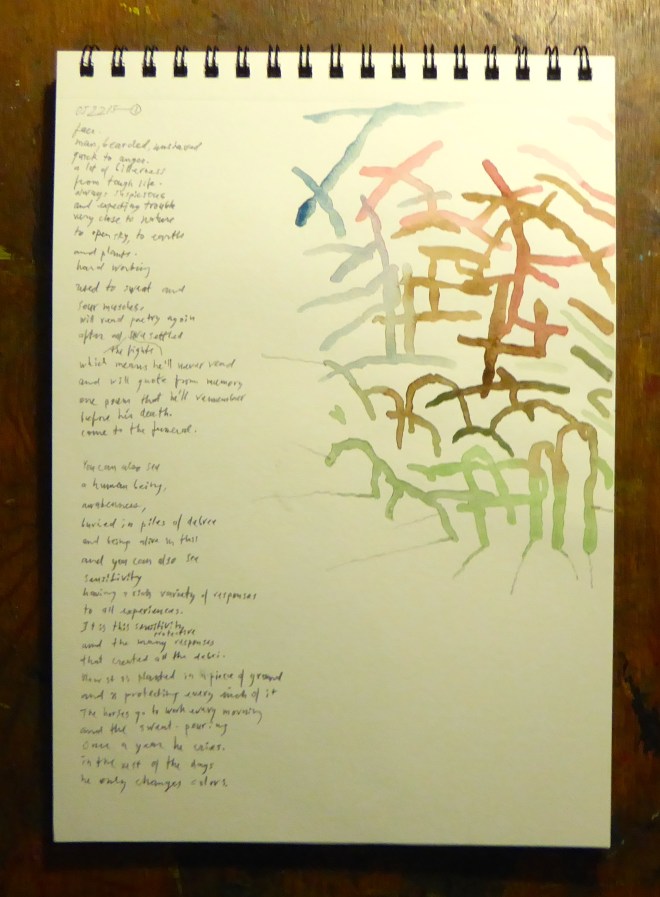 052215 — ①
face.
man, bearded, weathered
quick to anger.
a lot of bitterness
from tough life.
always suspicious
and expecting trouble
very close to nature
to open sky, to earth
and plants.
hard working
used to sweat and
sour muscles.
will read poetry again
after all, are settled
the fights
which means he'll never read
and will quote from memory
one poem that he'll remember
before his death.
come to the funeral.
You can also see
a human being,
awakenness,
buried in piles of debree
and being alive in this
and you can also see
sensitivity
having a rich variety of responses
to all experiences.
It is this sensitivity
protective
and the many responses
that created all the debri.
Now it is planted in a piece of ground
and is protecting every inch of it
The horses go to work every morning
and the sweat pouring
Once a year he cries.
in the rest of the days
he only changes colors